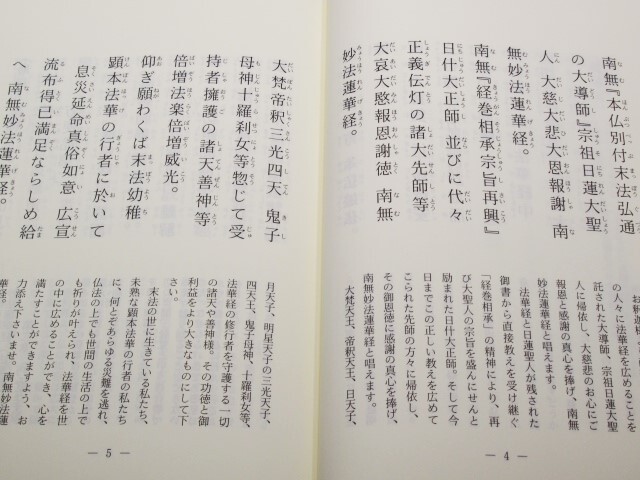 南無『本仏別付　末法弘通
の大導師』宗祖日蓮大聖
人　大慈大悲大恩報謝　南
無妙法蓮華経。
南無『経巻相承宗旨再興』
日什大正師　並びに代々
正義伝灯の諸大先師等
大哀大愍報恩謝徳　南無
妙法蓮華経。
の人々に法華経を広めることを
託された大導師、宗祖日蓮大聖
人に帰依し、大慈悲のお心にご
報恩と感謝の真心を捧げ、南無
妙法蓮華経と唱えます。
法華経と日蓮聖人が残された
御書から直接教えを受け継ぐ
「経巻相承」の精神により、再
び大聖人の宗旨を盛んにせんと
励まれた日什大正師。そして今
日までこの正しい教えを広めて
こられた先師の方々に帰依し、
その御恩徳に感謝の真心を捧げ、
南無妙法蓮華経と唱えます。
大梵天王、帝釈天王、日天子、
— 4 —
大梵帝釈三光四天　鬼子
母神十羅刹女等惣じて受
持者擁護の諸天善神等
倍増法楽倍増威光。
仰ぎ願わくば末法幼稚
顕本法華の行者に於いて
息災延命真俗如意　広宣
流布得已満足ならしめ給
へ　南無妙法蓮華経。
月天子、明星天子の三光天子、
四天王、鬼子母神、十羅刹女等、
法華経の修行者を守護する一切
の諸天や善神様。その功徳と御
利益をより大きなものにして下
さい。
末法の世に生きている私たち、
未熟な顕本法華の行者の私たち
に、何とぞあらゆる災難を逃れ、
仏法の上でも世間の生活の上で
も祈りが叶えられ、法華経を世
の中に広めることができ、心を
満たすことができますよう、お
力添え下さいませ。南無妙法蓮
華経。
— 5 —